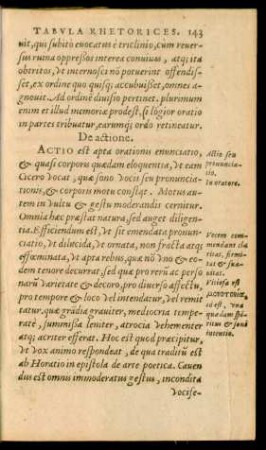 TABVLA RHETORICES. 143
uit, qui subitò euocatus è triclinio, cum reuer-
sus ruina oppressos interea conuiuas, atq; ita
obtritos, vt internosci nō potuerint offendis-
set, ex ordine quo quisq; accubuisset, omnes a-
gnouit. Ad ordinē diuisio pertinet. plurimum
enim et illud memoriæ prodest, si lōgior oratio
in partes tribuatur, earumq; ordo retineatur.
De actione.
ACTIO est apta orationis enunciatio,
& quasi corporu quædam eloquentia, vt eam
Cicero vocat, quæ sonis vocis seu pronuncia-
tionis, & corporis motu constat. Motus au-
tem in vultu & gestu moderandis cernitur.
Omnia hæc præstat natura, sed auget diligen-
tia. Efficiendum est, vt sit emendata pronun-
ciatio, vt dilucida, vt ornata, non fracta atq;
effœminata, vt apta rebus, quæ nō vno & eo-
dem tenore decurrat, sed quæ pro rerū ac perso
narū varietate & decoro, pro diuerso affectu,
pro tempore & loco vel intendatur, vel remit
tatur. quæ grādia grauiter, mediocria tempe-
ratè, summissa leniter, atrocia vehementer
atq; acriter efferat. Hoc est quod præcipitur,
vt vox animo respondeat, de qua traditū est
ab Horatio in epistola de arte poetica. Cauen
dus est omnis immoderatus gestus, incondita
vocise-
Actio seu
pronunciatio,
in oratore.
Vocem com-
mendant cla
ritas, firmi-
tas & sua-
uitas.
Vitiosa est
id est, vna
quædam spi-
ritus & soni
intentio.